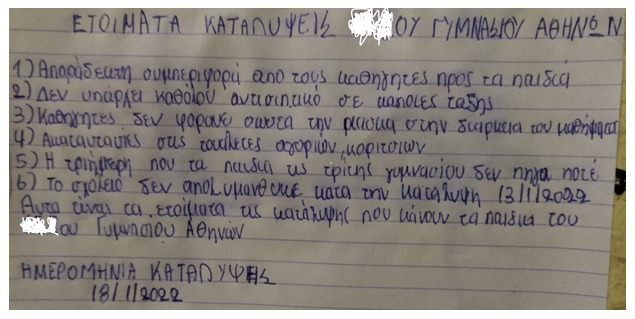 ΕΤΟΙΜΑΤΑ ΚΑΤΑΛΥΨΕΙΣ ΟΥ ΓΥΜΝΑΣΙΟΥ ΑΘΗΝΩΝ
1) Απαράδεκτη συμπεριφορά απο τους καθηγητες προς τα παιδιά
2) Δεν υπάρχει καθολου αντισιπτικό σε καποιες ταξης
3) Καθηγητες δεν φορανε σωστα την μασκα στην διαρκεια του μαθήματος
4) Ακαταστασίες στις τουαλετες αγοριών, κοριτσιών
5) Η τριήμερη που τα παιδια τις τρίτης γυμνασίου δεν πηγαν ποτέ
6) Το σχολείο δεν απολυμανθηκε κατα την καταλυψη 13/1/2022
Αυτα είναι τα ετοίματα τις κατάλυψης που κάνουν τα παιδια του
ου Γυμνασιου Αθηνών
ΗΜΕΡΟΜΗΝΙΑ ΚΑΤΑΛΥΨΗΣ
18/1/2022